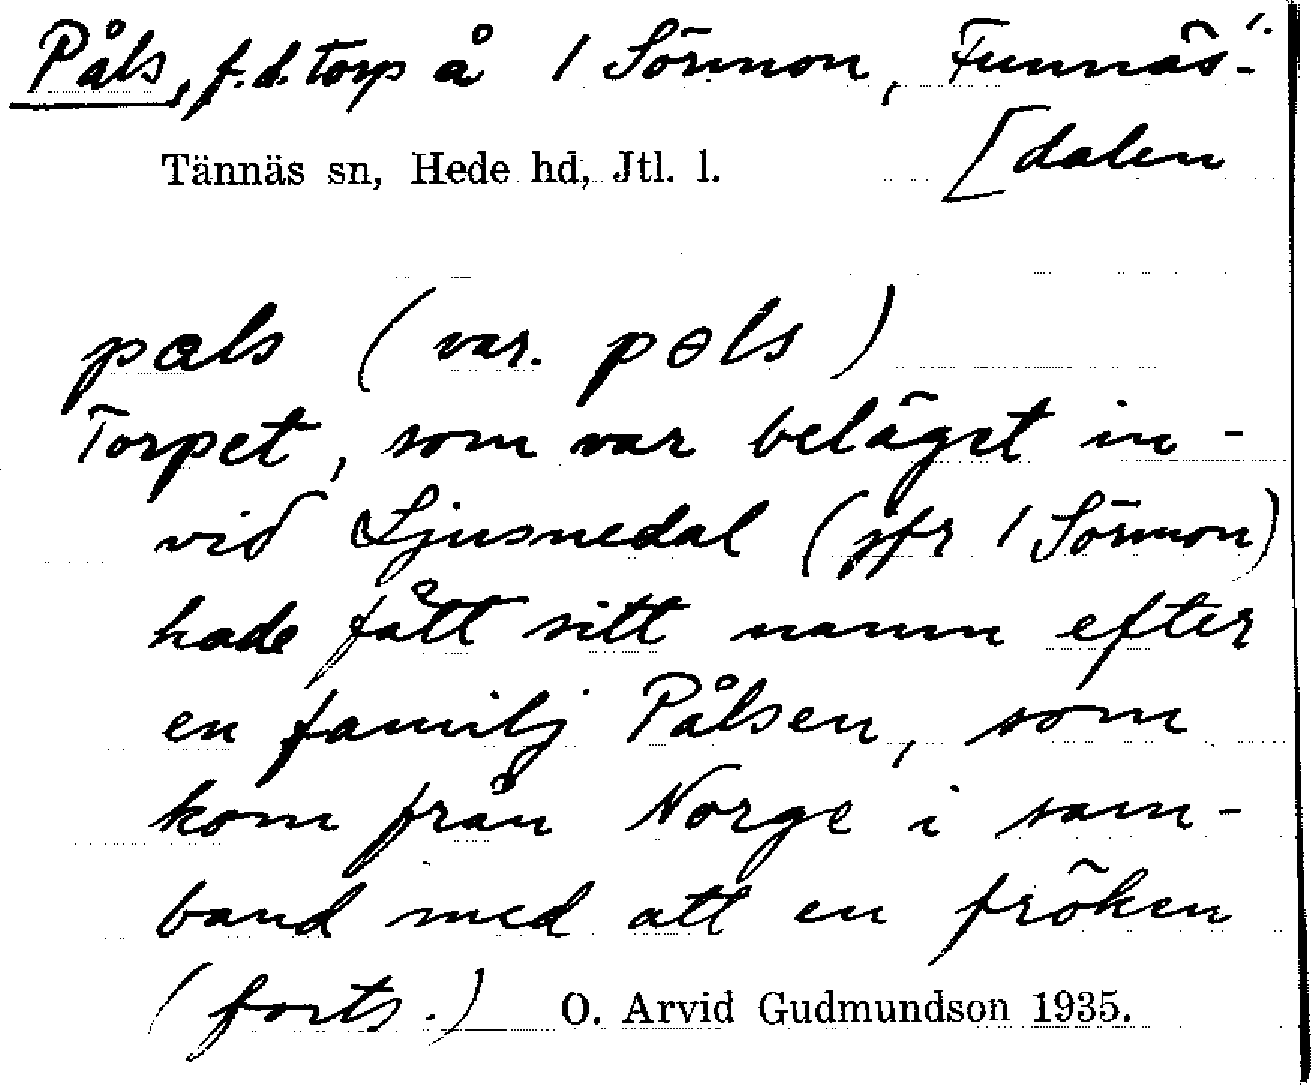 Påls, f.d. torp å 1 Sörmon, Funnäs-
[dalen
Tännäs sn, Hede hd, Jtl. l.
pals (var. pols)
Torpet, som var beläget in-
vid Ljusnedal (jfr 1 Sörmon)
hade fått sitt namn efter
en familj Pålsen, som
kom från Norge i sam-
band med att en fröken
(forts.) O. Arvid Gudmundson 1935.